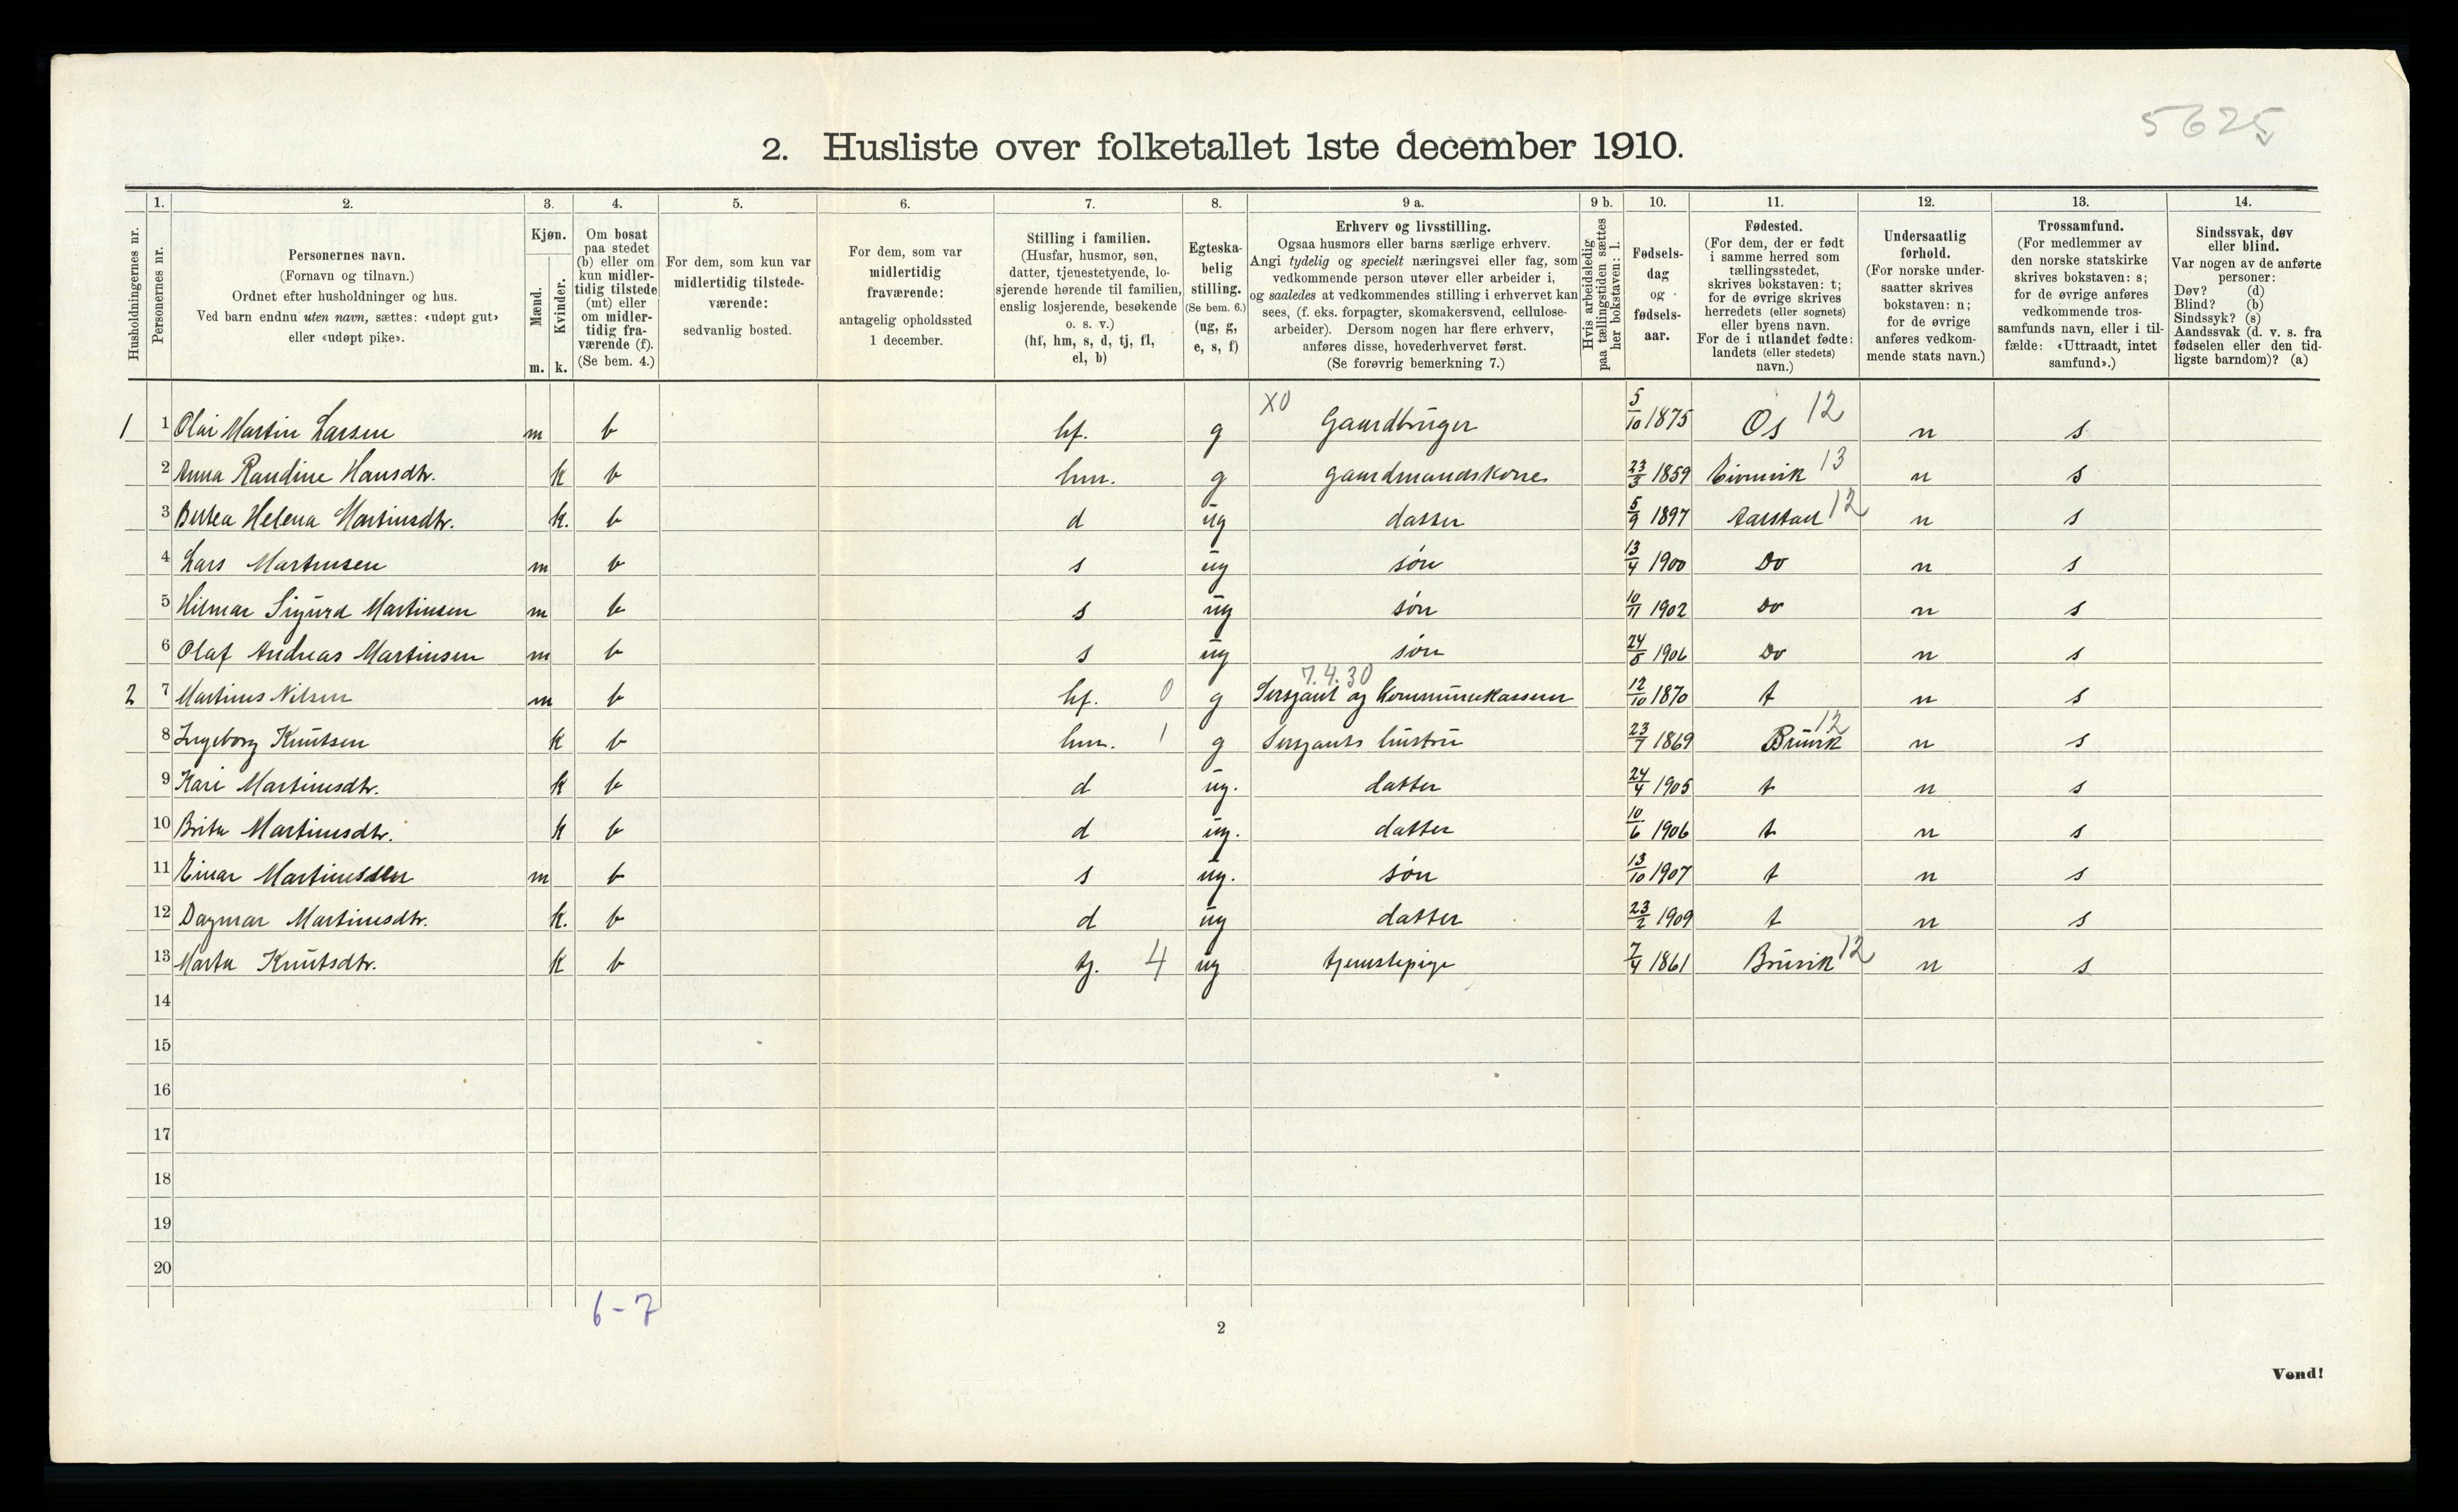 5625
2. Husliste over folketallet 1ste december 1910.
Husholdningernes nr.
1.
Personernes nr.
2.
Personernes navn.
(Fornavn og tilnavn.)
Ordnet efter husholdninger og hus.
Ved barn endnu uten navn, sættes: «udøpt gut»
eller «udøpt pike».
3.
Kjøn.
Mænd.
Kvinder.
m. k.
4.
Om bosat
paa stedet
(b) eller om
kun midler-
tidig tilstede
(mt) eller
om midler-
tidig fra-
værende (f).
(Se bem. 4.)
5.
For dem, som kun var
midlertidig tilstede-
værende:
sedvanlig bosted.
6.
For dem, som var
midlertidig
fraværende:
antagelig opholdssted
1 december.
7.
Stilling i familien.
(Husfar, husmor, søn,
datter, tjenestetyende, lo-
sjerende hørende til familien,
enslig losjerende, besøkende
o. s. v.)
(hf, hm, s, d, tj, fl,
el, b)
8.
Egteska-
belig
stilling.
(Se bem. 6.)
(ug, g,
e, s, f)
9 a.
Erhverv og livsstilling.
Ogsaa husmors eller barns særlige erhverv.
Angi tydelig og specielt næringsvei eller fag, som
vedkommende person utøver eller arbeider i,
og saaledes at vedkommendes stilling i erhvervet kan
sees, (f. eks. forpagter, skomakersvend, cellulose-
arbeider). Dersom nogen har flere erhverv,
anføres disse, hovederhvervet først.
(Se forøvrig bemerkning 7.)
9 b.
Hvis arbeidsledig
paa tællingstiden sættes
her bokstaven: l.
10.
Fødsels-
dag
og
fødsels-
aar.
11.
Fødested.
(For dem, der er født
i samme herred som
tællingsstedet,
skrives bokstaven: t;
for de øvrige skrives
herredets (eller sognets)
eller byens navn.
For de i utlandet fødte:
landets (eller stedets)
navn.)
12.
Undersaatlig
forhold.
(For norske under-
saatter skrives
bokstaven: n;
for de øvrige
anføres vedkom-
mende stats navn.)
13.
Trossamfund.
(For medlemmer av
den norske statskirke
skrives bokstaven: s;
for de øvrige anføres
vedkommende tros-
samfunds navn, eller i til-
fælde: «Uttraadt, intet
samfund».)
14.
Sindssvak, døv
eller blind.
Var nogen av de anførte
personer:
Døv? (d)
Blind? (b)
Sindssyk? (s)
Aandssvak (d. v. s. fra
fødselen eller den tid-
ligste barndom)? (a)
1 1 Olai Martin Larsen m b hf. g X0 Gaardbruger 5/10 1875 Os 12 n s
2 Anna Randine Hansdtr. k b hm. g gaardmandskone 23/3 1859 Eivinvik 13 n s
3 Bertea Helena Martinsdtr. k. b d ug datter 5/9 1897 Aarstad 12 n s
4 Lars Martinsen m b s ug søn 13/4 1900 Do n s
5 Hilmar Sigurd Martinsen m b s ug søn 10/11 1902 Do n s
6 Olaf Andreas Martinsen m b s ug søn 24/5 1906 Do n s
2 7 Martinus Nilsen m b hf. 0 g 7.4.30 Sersjant og kommunekasserer 12/10 1870 t n s
8 Ingeborg Knutsen k b hm. 1 g Sersjants hustru 23/7 1869 Bruvik 12 n s
9 Kari Martinusdtr. k b d ug. datter 24/4 1905 t n s
10 Brita Martinusdtr. k b d ug. datter 10/6 1906 t n s
11 Einar Martinussen m b s ug. søn 13/10 1907 t n s
12 Dagmar Martinusdtr. k. b d ug datter 23/2 1909 t n s
13 Marta Knutsdtr. k b tj. 4 ug tjenestepige 7/4 1861 Bruvik 12 n s
14
15
16
17
18
19
20
6-7
2
Vend!